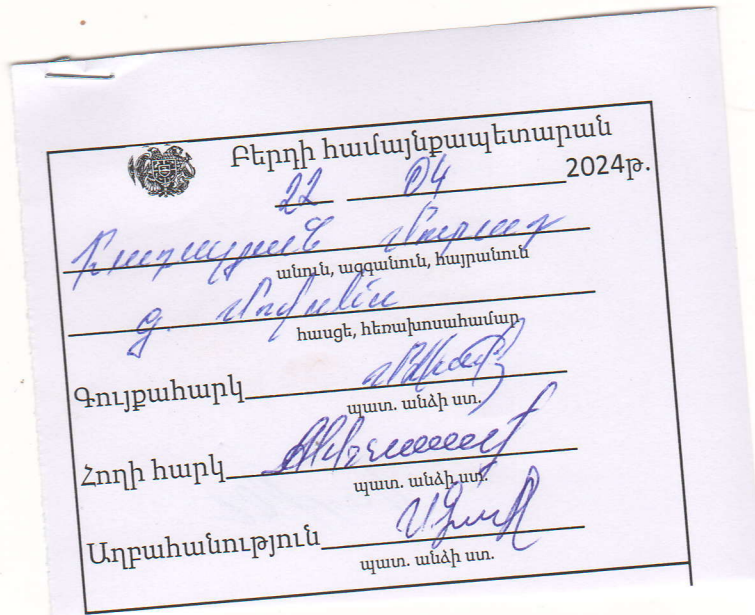 Բերդի համայնքապետարան
22 04 2024թ.
անուն, ազգանուն, հայրանուն
գ. Մովսես
հասցե, հեռախոսահամար
Գույքահարկ
պատ. անձի ստ.
Հողի հարկ
պատ. անձի ստ.
Աղբահանություն
պատ. անձի ստ.